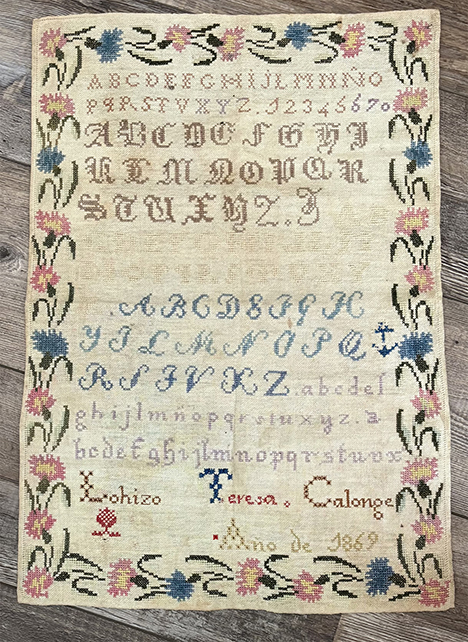 ABCDEFGHIJLMNÑO
PQRSTVXYZ 1234567o
ABCDEFGHI
KLMNOPQR
STUXYZ.J
.ABCDEFGH
YILMNOPQ
RSTVXZ.abcdef
ghijlmnopqrstuxyz.a
bcdefghijlmnopqrstuvx
Lohizo Teresa. Calonge
Año de 1869